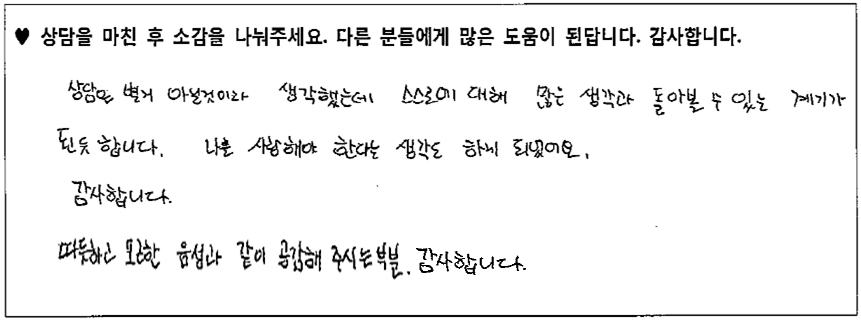 ♥ 상담을 마친 후 소감을 나눠주세요. 다른 분들에게 많은 도움이 된답니다. 감사합니다.
상담은 별거 아닐것이라 생각했는데 스스로에 대해 많은 생각과 돌아볼 수 있는 계기가
된듯 합니다. 나를 사랑해야 한다는 생각도 하게 되었어요.
감사합니다.
따듯하고 포근한 음성과 같이 공감해 주시는부분, 감사합니다.